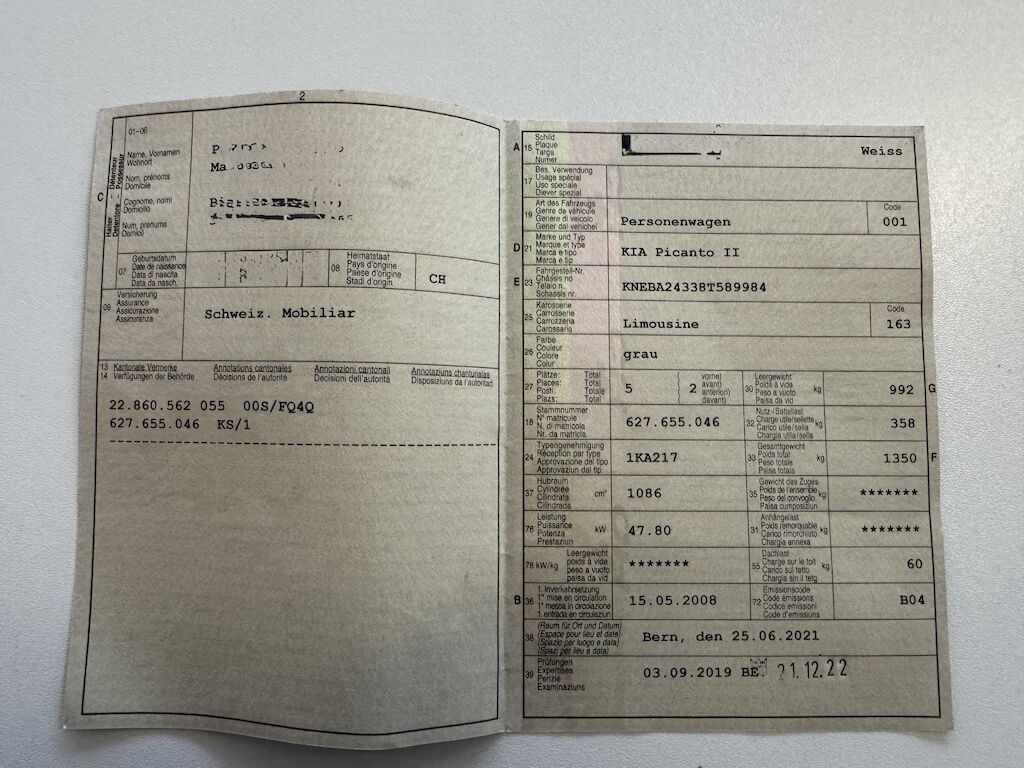 2
01-06
Name, Vornamen
Wohnort
Nom, prénoms
Domicile
Cognome, nomi
Domicilio
Num, prenums
Domicil
C
Halter Détenteur
Detentore Possessur
07
Geburtsdatum
Date de naissance
Data di nascita
Data da nasch.
08
Heimatstaat
Pays d'origine
Paese d'origine
Stadi d'origin
CH
09
Versicherung
Assurance
Assicurazione
Assicuranza
Schweiz. Mobiliar
13 Kantonale Vermerke Annotations cantonales Annotazioni cantonali Annotaziuns chantunalas
14 Verfügungen der Behörde Décisions de l'autorité Decisioni dell'autorità Disposiziuns da l'autoritad
22.860.562 055 00S/FQ4Q
627.655.046 KS/1
A 15
Schild
Plaque
Targa
Numer
Weiss
17
Bes. Verwendung
Usage spécial
Uso speciale
Diever spezial
19
Art des Fahrzeugs
Genre de véhicule
Genere di veicolo
Gener dal vehichel
Personenwagen
Code
001
D 21
Marke und Typ
Marque et type
Marca e tipo
Marca e tip
KIA Picanto II
E 23
Fahrgestell-Nr.
Châssis no
Telaio n.
Schassis nr.
KNEBA24338T589984
25
Karosserie
Carrosserie
Carrozzeria
Carossaria
Limousine
Code
163
26
Farbe
Couleur
Colore
Colur
grau
27
Plätze: Total
Places: Total
Posti: Totale
Plazs: Total
5
2
vorne)
avant)
anteriori)
davant)
30
Leergewicht
Poids à vide
Peso a vuoto
Paisa da vid
kg
992 G
18
Stammnummer
N° matricule
N. di matricola
Nr. da matricla
627.655.046
32
Nutz-/Sattellast
Charge utile/sellette
Carico utile/sella
Chargia utila/sella
kg
358
24
Typengenehmigung
Réception par type
Approvazione del tipo
Approvaziun dal tip
1KA217
33
Gesamtgewicht
Poids total
Peso totale
Paisa totala
kg
1350 F
37
Hubraum
Cylindrée
Cilindrata
Cilindrada
cm³
1086
35
Gewicht des Zuges
Poids de l'ensemble
Peso del convoglio
Paisa cumposiziun
kg
*******
76
Leistung
Puissance
Potenza
Prestaziun
kW
47.80
31
Anhängelast
Poids remorquable
Carico rimorchiato
Chargia annexa
kg
*******
78 kW/kg
Leergewicht
poids à vide
peso a vuoto
paisa da vid
*******
55
Dachlast
Charge sur le toit
Carico sul tetto
Chargia sin il tetg
kg
60
B 36
1. Inverkehrsetzung
1re mise en circulation
1a messa in circolazione
1. entrada en circulaziun
15.05.2008
72
Emissionscode
Code émissions
Codice emissioni
Code d'emissiuns
B04
38
(Raum für Ort und Datum)
(Espace pour lieu et date)
(Spazio per luogo e data)
(Spazi per lieu e data)
Bern, den 25.06.2021
39
Prüfungen
Expertises
Perizie
Examinaziuns
03.09.2019 BE 21.12.22